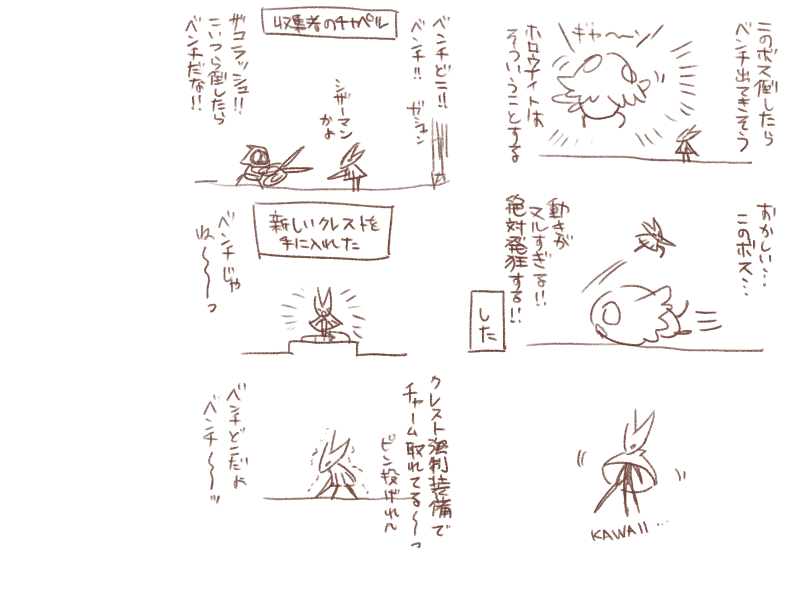 このボス倒したら
ベンチ出てきそう
ギャ〜〜ン
ホロウナイトは
そういうことする
おかしい…
このボス…
動きが
ヌルすぎる!!
絶対発狂する!!
した
KAWAII…
ベンチどこ!!
ベンチ!!
ガシュン
収集者のチャペル
シザーマン
かよ
ザコラッシュ!!
こいつら倒したら
ベンチだな!!
新しいクレストを
手に入れた
ベンチじゃ
ね〜〜〜っ
クレスト強制装備で
チャーム取れてる〜っ
ピン投げれん
ベンチどこだよ
ベンチ〜〜ッ